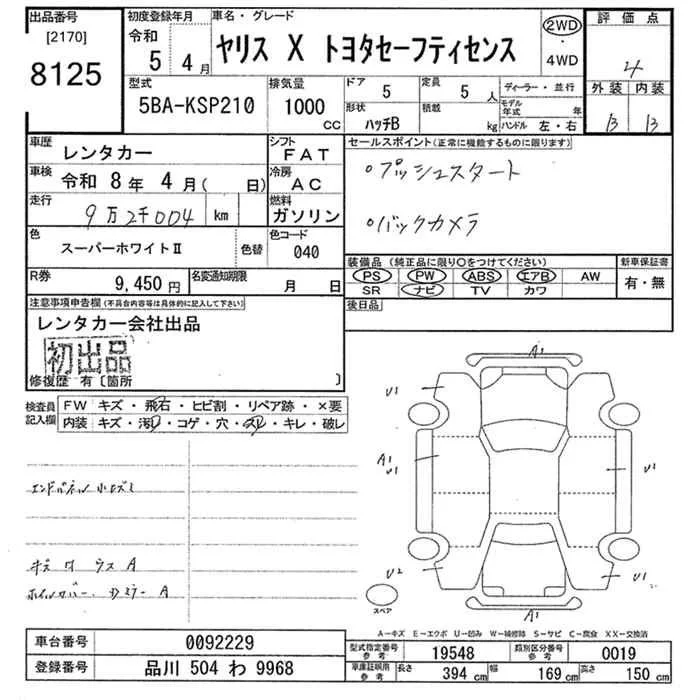 出品番号 初度登録年月 車名・グレード 評価点
[2170] 令和 ヤリス X トヨタセーフティセンス 2WD・4WD
8125 5年4月 4
型式 排気量 ドア 5 定員 5人 ディーラー・並行 外装 内装
5BA-KSP210 1000cc 形状 ハッチB 積載 kg モデル年式 年 B B
ハンドル 左・右
車歴 レンタカー シフト FAT セールスポイント(正常に機能するものに限ります)
車検 令和 8年 4月( 日) 冷房 AC ・プッシュスタート
走行 9万2千004 km 燃料 ガソリン ・バックカメラ
色 スーパーホワイトⅡ 色替 色コード 040
装備品(純正品に限り○をつけてください) 新車保証書
PS PW ABS エアB AW 有・無
SR ナビ TV カワ
R券 9,450円 名変通知期限 月 日
後日品
注意事項申告欄(不具合内容等は具体的に記入して下さい)
レンタカー会社出品
初出品
修復歴 有〔箇所 〕
検査員記入欄 FW キズ・飛石・ヒビ割・リペア跡・×要
内装 キズ・汚れ・コゲ・穴・スレ・キレ・破レ
A1
U1
A1
U1
U1
U1
U2
U1
A1
スペア
A-キズ E-エクボ U-凹み W-補修跡 S-サビ C-腐食 XX-交換済
車台番号 0092229 型式指定番号 参考 19548 類別区分番号 参考 0019
登録番号 品川 504 わ 9968 車庫証明用 参考 長さ 394cm 幅 169cm 高さ 150cm